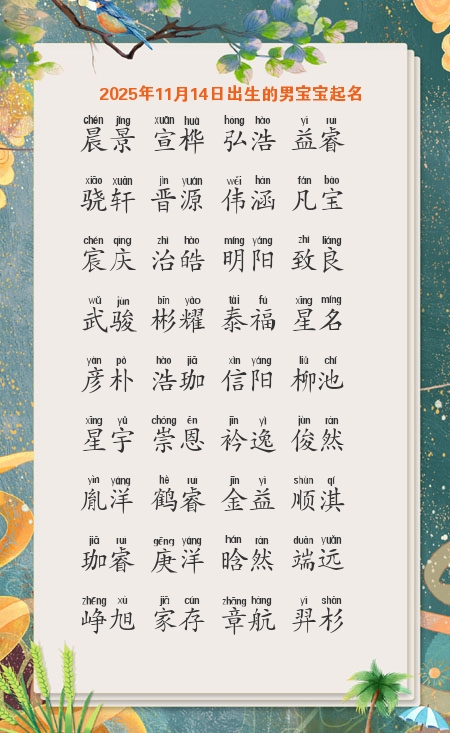 2025年11月14日出生的男宝宝起名
chén jǐng xuān huà hóng hào yì ruì
晨景 宣桦 弘浩 益睿
xiāo xuān jìn yuán wěi hán fán bǎo
骁轩 晋源 伟涵 凡宝
chén qìng zhì hào míng yáng zhì liáng
宸庆 治皓 明阳 致良
wǔ jùn bīn yào tài fú xīng míng
武骏 彬耀 泰福 星名
yàn pò hào jiā xìn yáng liǔ chí
彦朴 浩珈 信阳 柳池
xīng yǔ chóng ēn jīn yì jùn rán
星宇 崇恩 衿逸 俊然
yìn yáng hè ruì jīn yì shùn qí
胤洋 鹤睿 金益 顺淇
jiā ruì gēng yáng hán rán duān yuǎn
珈睿 庚洋 晗然 端远
zhēng xù jiā cún zhāng háng yì shān
峥旭 家存 章航 羿杉